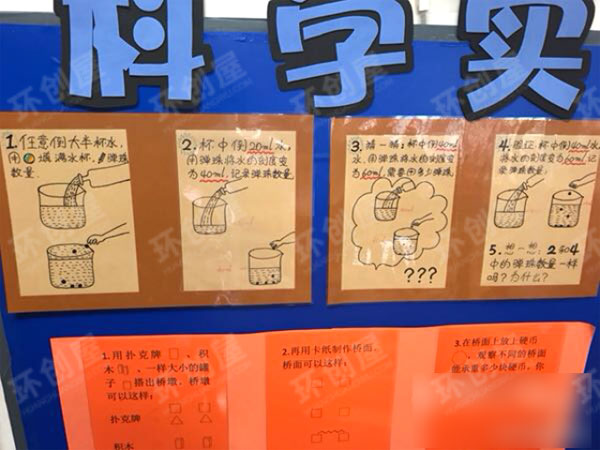 科学实
1.任意倒大半杯水,
用 填满水杯,
数量.
2.杯中倒20ml水,
用弹珠将水的刻度变
为40ml,记录弹珠数量.
3.猜一猜:杯中倒40ml
水,用弹珠将水的刻度变
为60ml,需要用多少弹珠
???
4.验证:杯中倒40ml水,
用弹珠将水的刻度变
为60ml,记
录弹珠数量.
5.想一想,2和4
中的弹珠数量一样
吗?为什么?
1.用扑克牌 、积
木 、一样大小的罐
子 搭出桥墩,桥墩
可以这样:
扑克牌
积木
2.再用卡纸制作桥面,
桥面可以这样:
3.在桥面上放上硬币
,观察不同的桥面
能承重多少块硬币,你
环创屋